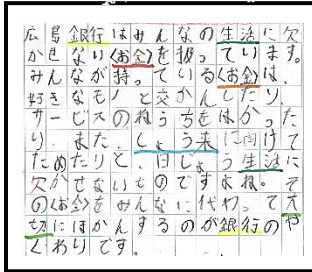 広島銀行はみんなの生活に欠
かせない〈お金〉を扱っています。
みんなが持っている〈お金〉は、
好きなモノと交かんしたり、
サービスのねうちをはかった
り、また、しょう来に向けて
ためたりと、日じょう生活に
欠かせないものですよね。そ
の〈お金〉をみんなに代わって大や
切にほかんするのが銀行の
くわりです。